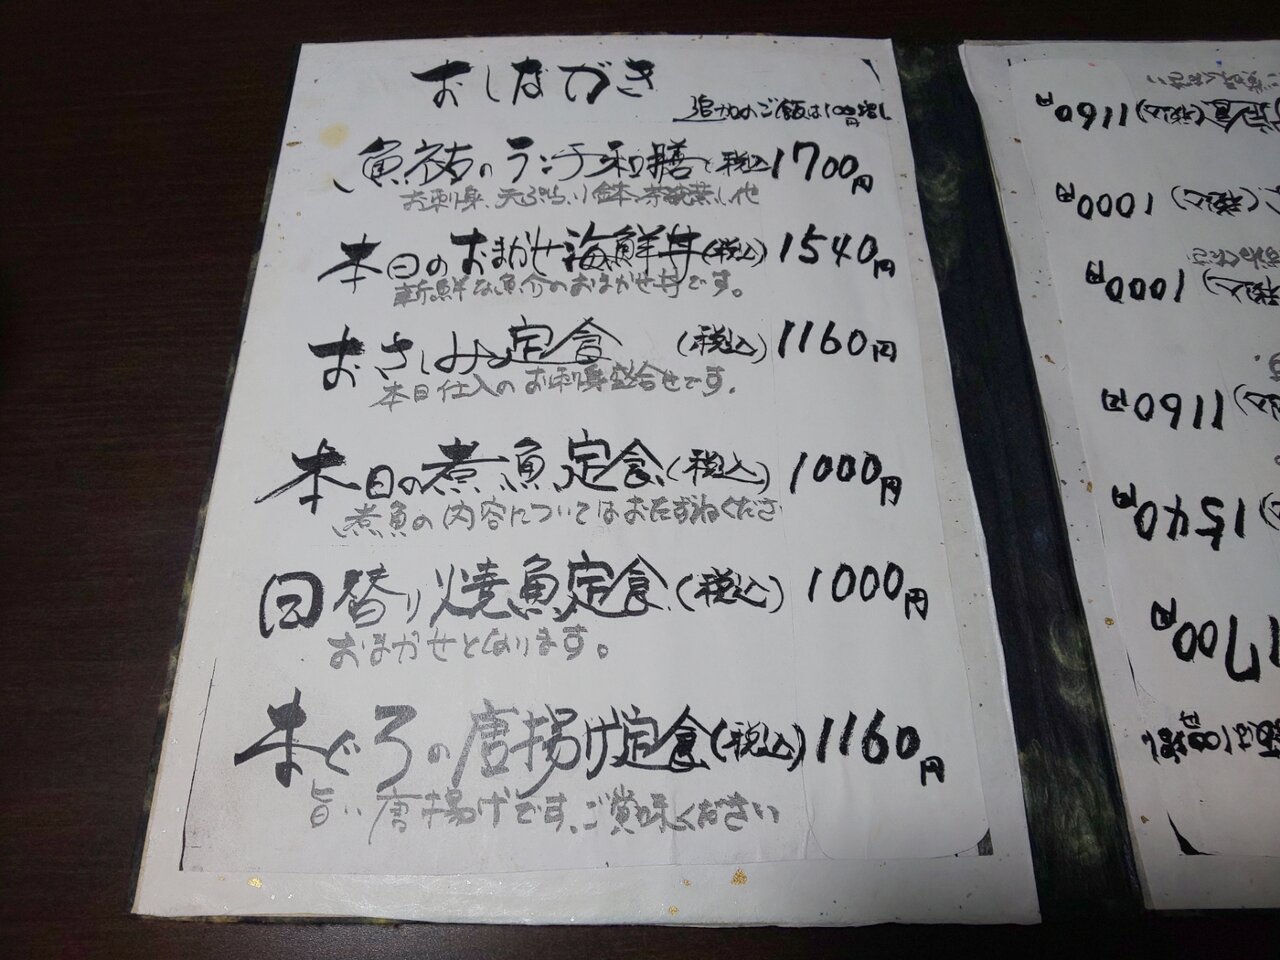 おしながき
追加のご飯は100円増し
魚衣右のランチ和膳(税込)1700円
お刺身、天ぷら、小鉢、茶碗蒸し他
本日のおまかせ海鮮丼(税込)1540円
新鮮な魚介のおまかせ丼です。
おさしみ定食 (税込)1160円
本日仕入のお刺身盛合せです。
本日の煮魚定食(税込)1000円
煮魚の内容についてはおたずねくださ
日替り焼魚定食(税込)1000円
おまかせとなります。
まぐろの唐揚げ定食(税込)1160円
旨い唐揚げです、ご賞味ください
定食(税込)1160円
(税込)1000円
税込)1000円
込)1160円
1540円
1700円
飯は100円増し